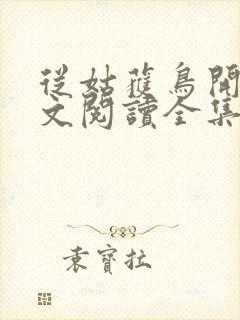 從姑蘿鳥開
文閱讀全集
袁寶拉